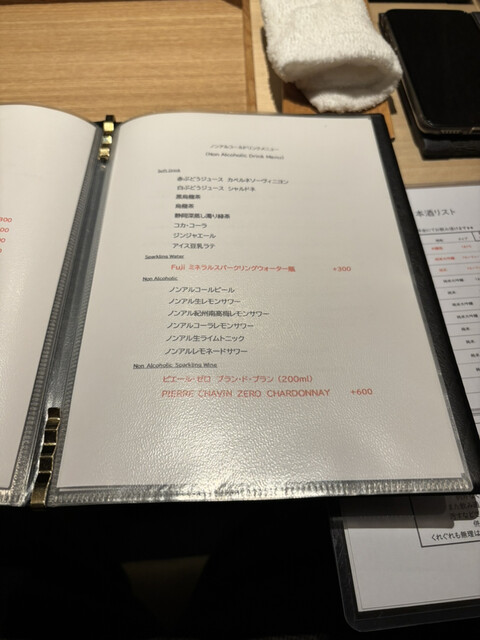 ノンアルコールドリンクメニュー
(Non Alcoholic Drink Menu)
Soft Drink
赤ぶどうジュース カベルネソーヴィニヨン
白ぶどうジュース シャルドネ
黒烏龍茶
烏龍茶
静岡深蒸し濁り緑茶
コカ・コーラ
ジンジャエール
アイス豆乳ラテ
Sparkling Water
Fuji ミネラルスパークリングウォーター瓶 +300
Non Alcoholic
ノンアルコールビール
ノンアル生レモンサワー
ノンアル紀州南高梅レモンサワー
ノンアルコーラレモンサワー
ノンアル生ライムトニック
ノンアルレモネードサワー
Non Alcoholic Sparkling Wine
ピエール・ゼロ ブラン・ド・ブラン (200ml)
PIERRE CHAVIN ZERO CHARDONNAY +600
本酒リスト
くれぐれも無理は